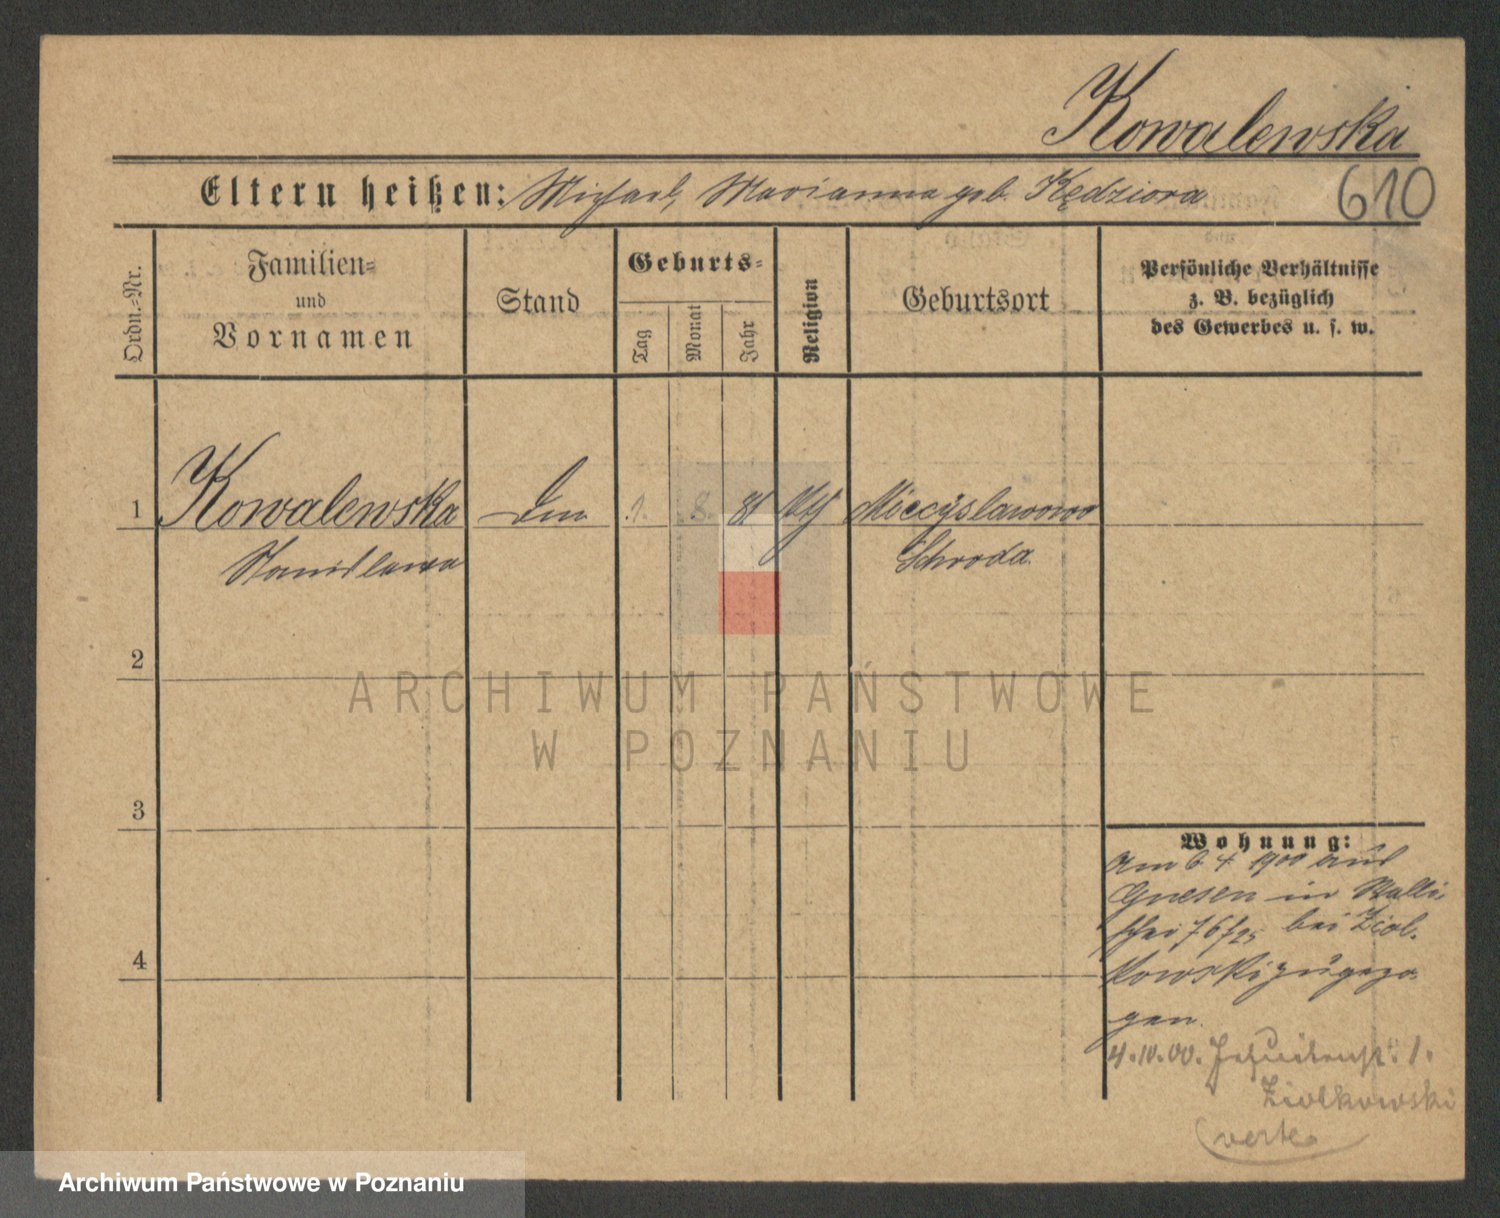 Kowalewska
Eltern heißen: Michael, Marianna geb. Kędziora
610
Ordn.-Nr.
Familien-
und
Vornamen
Stand
Geburts-
Tag
Monat
Jahr
Religion
Geburtsort
Persönliche Verhältnisse
z. B. bezüglich
des Gewerbes u. s. w.
1 Kowalewska 1. 8. 81 Mieczyslawowo
Stanislawa Schroda
2
ARCHIWUM PAŃSTWOWE
W POZNANIU
3
Wohnung:
Am 6 4 1900 aus
Gnesen in Walli-
schei 76/75 bei Ziol-
kowski zugezo-
gen.
4.10.00. Jesuitenstr. 1.
Ziolkowski
verte
4
Archiwum Państwowe w Poznaniu